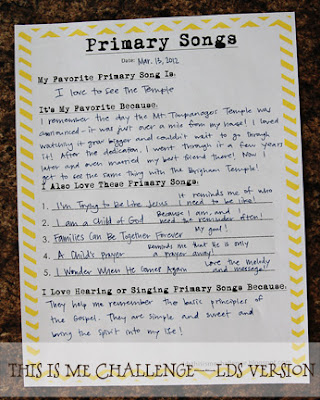 Primary Songs
Date: Mar. 13, 2012
My Favorite Primary Song Is:
I love to see the Temple
It's My Favorite Because:
I remember the day the Mt. Timpanogos Temple was
announced - it was just over a mile from my house! I loved
watching it grow bigger and couldn't wait to go through
it! After the dedication, I went through it a few years
later and even married my best friend there! Now I
get to see the same thing with the Brigham Temple!
I Also Love These Primary Songs:
1. I'm Trying to be Like Jesus it reminds me of who I need to be like!
2. I am a Child of God Because I am, and need the reminder often!
3. Families Can Be Together Forever my goal!
4. A Child's Prayer Reminds me that He is only a prayer away!
5. I Wonder When He Comes Again Love the melody and message!
I Love Hearing or Singing Primary Songs Because:
They help me remember the basic principles of
the Gospel. They are simple and sweet and
bring the spirit into my life!
THIS IS ME CHALLENGE--LDS VERSION